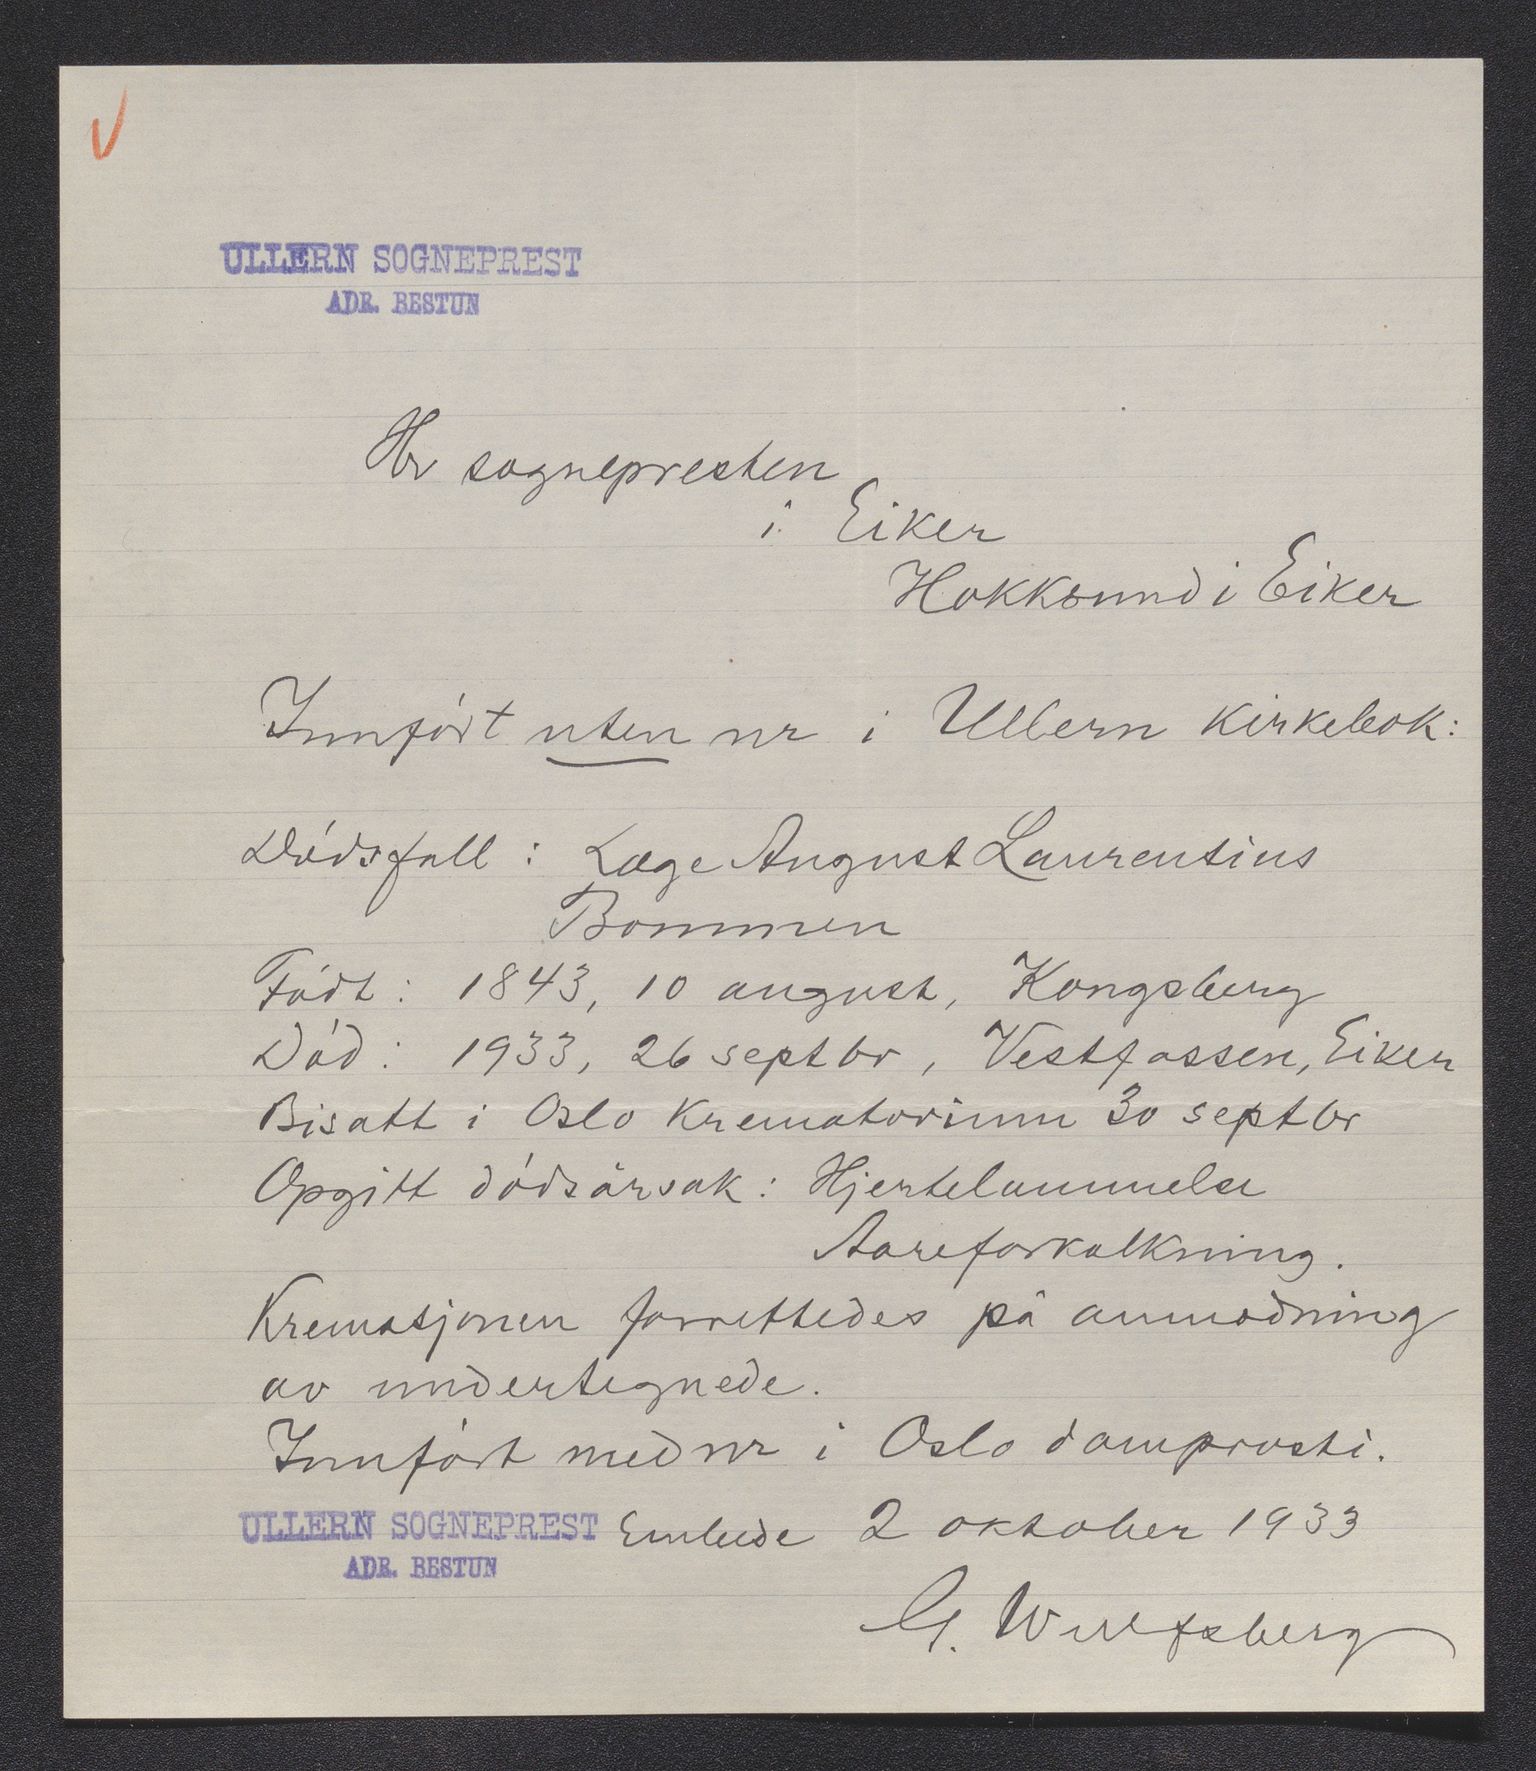 ULLERN SOGNEPREST
ADR. BESTUN
Hr sognepresten
i Eiker
Hokksund i Eiker
Innført uten nr i Ullern kirkebok:
Dødsfall : Læge August Laurentius
Bommen
Født : 1843, 10 august, Kongsberg
Død : 1933, 26 septbr, Vestfossen, Eiker
Bisatt i Oslo Krematorium 30 septbr
Opgitt dødsårsak : Hjertelammelse
Aareforkalkning.
Kremasjonen forrettedes på anmodning
av undertegnede.
Innført med nr i Oslo domprosti.
ULLERN SOGNEPREST Embede 2 oktober 1933
ADR. BESTUN
G. Wulfsberg